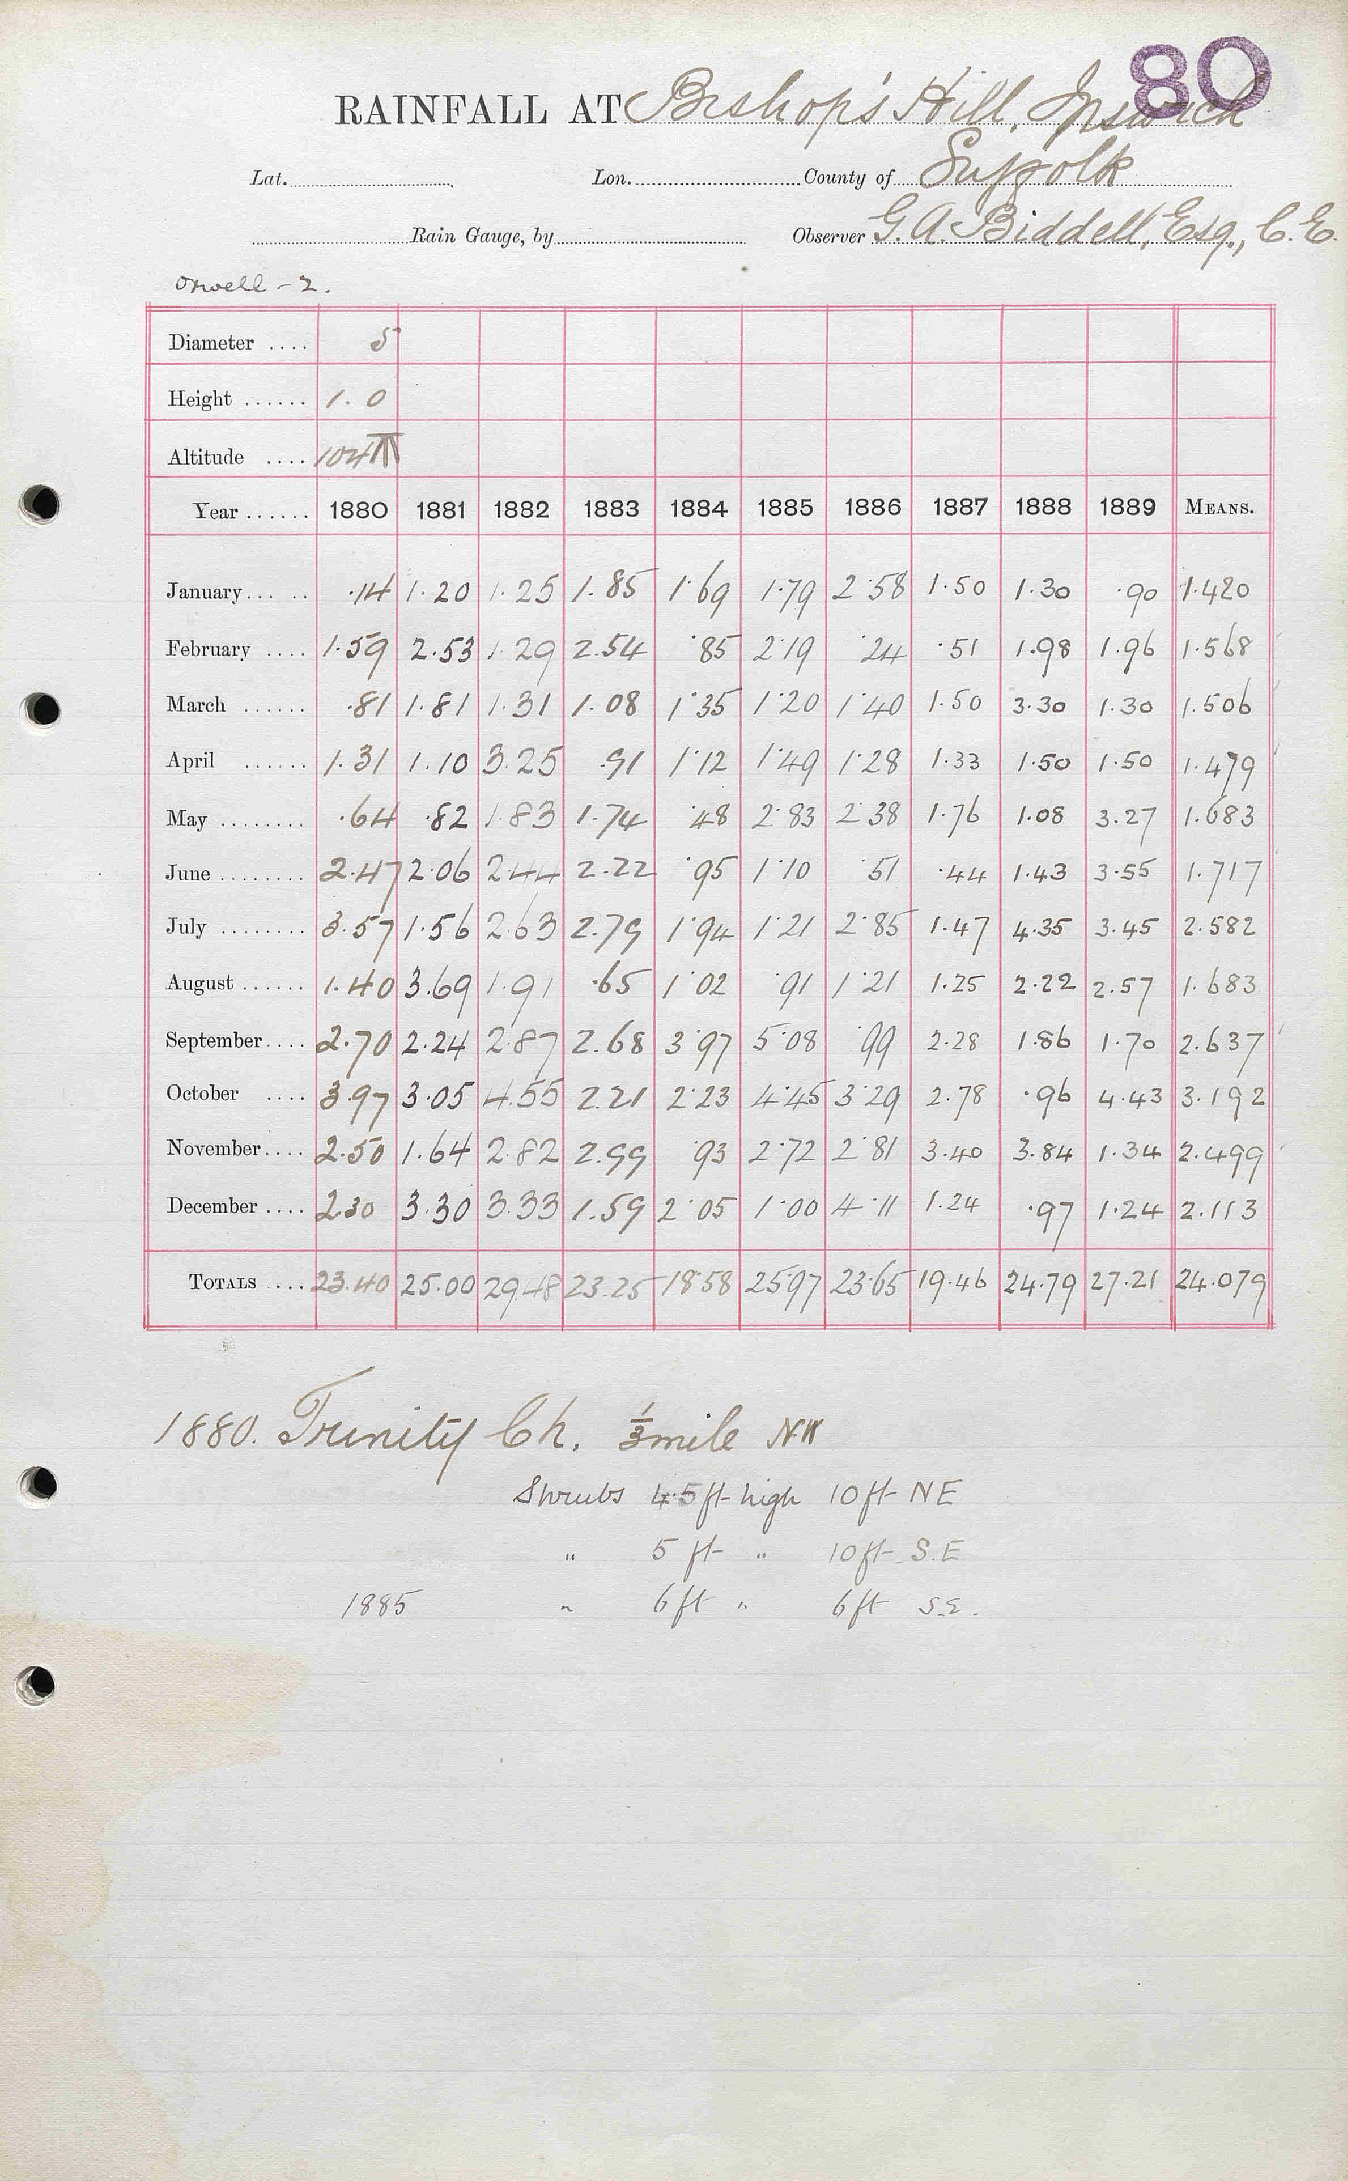 80
RAINFALL AT Bishop's Hill, Ipswich
Lat. Lon. County of Suffolk
Rain Gauge, by Observer G. A. Biddell, Esq., C.E.
Orwell - 2.
Diameter .... 5
Height ...... 1.0
Altitude .... 104
Year ...... 1880 1881 1882 1883 1884 1885 1886 1887 1888 1889 MEANS.
January... .. .14 1.20 1.25 1.85 1.69 1.79 2.58 1.50 1.30 .90 1.420
February .... 1.59 2.53 1.29 2.54 .85 2.19 .24 .51 1.98 1.96 1.568
March ...... .81 1.81 1.31 1.08 1.35 1.20 1.40 1.50 3.30 1.30 1.506
April ...... 1.31 1.10 3.25 .91 1.12 1.49 1.28 1.33 1.50 1.50 1.479
May ........ .64 .82 1.83 1.74 .48 2.83 2.38 1.76 1.08 3.27 1.683
June ........ 2.47 2.06 2.44 2.22 .95 1.10 .51 .44 1.43 3.55 1.717
July ........ 3.57 1.56 2.63 2.79 1.94 1.21 2.85 1.47 4.35 3.45 2.582
August ...... 1.40 3.69 1.91 .65 1.02 .91 1.21 1.25 2.22 2.57 1.683
September.... 2.70 2.24 2.87 2.68 3.97 5.08 .99 2.28 1.86 1.70 2.637
October .... 3.97 3.05 4.55 2.21 2.23 4.45 3.29 2.78 .96 4.43 3.192
November.... 2.50 1.64 2.82 2.99 .93 2.72 2.81 3.40 3.84 1.34 2.499
December .... 2.30 3.30 3.33 1.59 2.05 1.00 4.11 1.24 .97 1.24 2.113
TOTALS .... 23.40 25.00 29.48 23.25 18.58 25.97 23.65 19.46 24.79 27.21 24.079
1880. Trinity Ch. 1/3 mile NW
Shrubs 4.5 ft high 10 ft NE
" 5 ft " 10 ft S.E
1885 " 6 ft " 6 ft S.E.